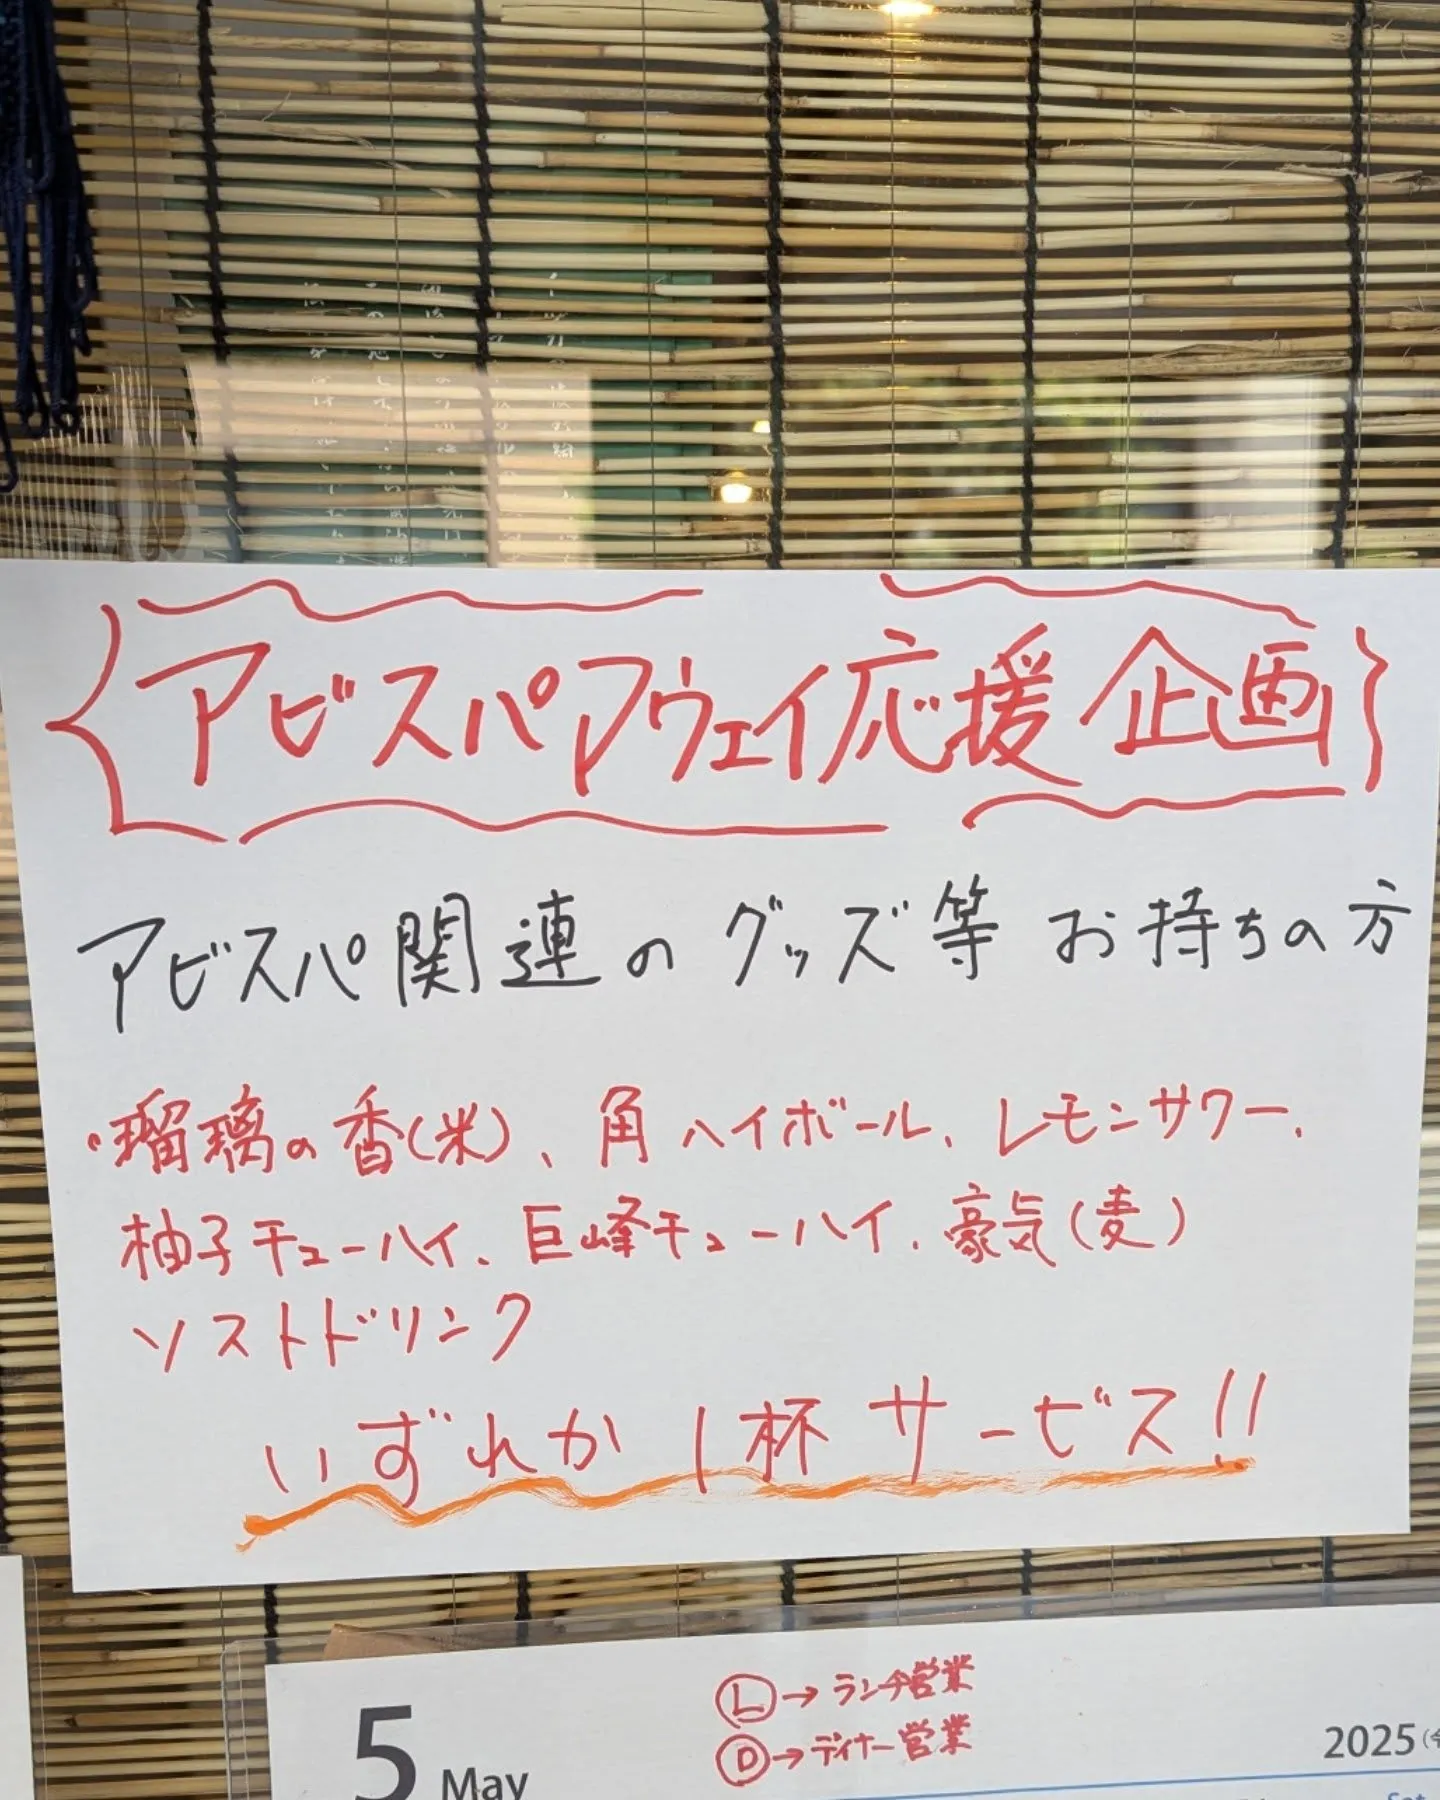 アビスパアウェイ応援企画
アビスパ関連のグッズ等 お持ちの方
・瑠璃の香(米)、角ハイボール、レモンサワー、
柚子チューハイ、巨峰チューハイ、豪気(麦)
ソストドリンク
いずれか1杯サービス!!
Ⓛ→ランチ営業
Ⓓ→ディナー営業
5 May
2025
Sat